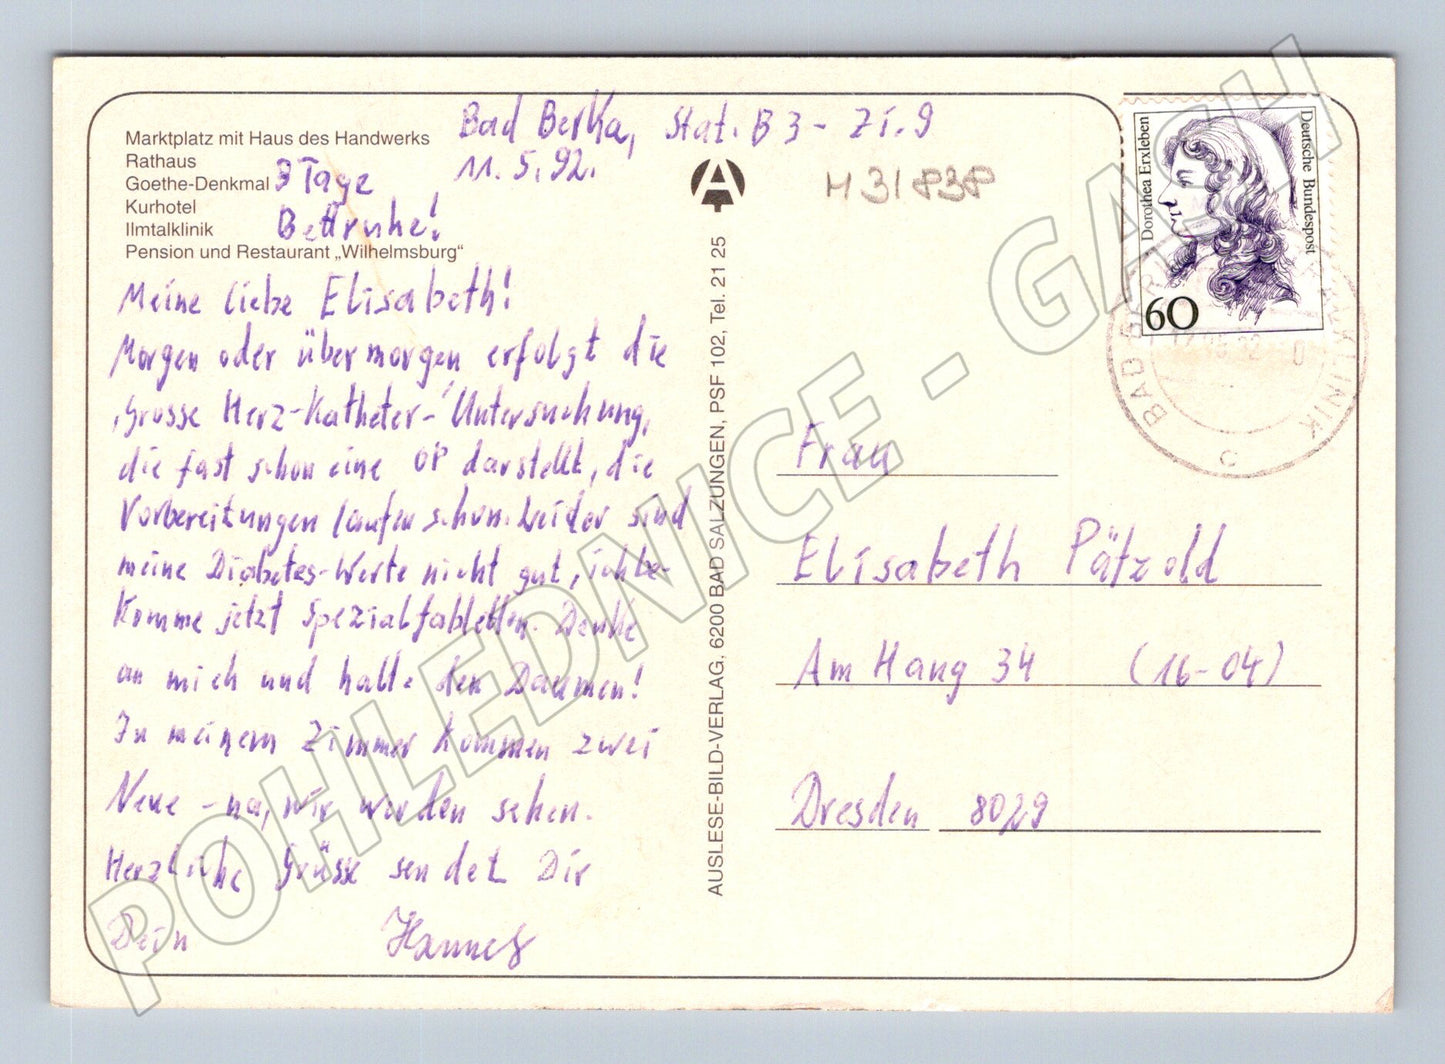 Marktplatz mit Haus des Handwerks
Rathaus
Goethe-Denkmal
Kurhotel
Ilmtalklinik
Pension und Restaurant „Wilhelmsburg“
Bad Berka, Stat. B 3 - Zi. 9
11. 5. 92.
3 Tage
Bettruhe!
Meine liebe Elisabeth!
Morgen oder übermorgen erfolgt die
'Grosse Herz-Katheter-'Untersuchung,
die fast schon eine OP darstellt, die
Vorbereitungen laufen schon. Leider sind
meine Diabetes-Werte nicht gut, ich be-
komme jetzt Spezialtabletten. Denke
an mich und halte den Daumen!
In meinem Zimmer kommen zwei
Neue - na, wir werden sehen.
Herzliche Grüsse sendet Dir
Dein Hannes
A
AUSLESE-BILD-VERLAG, 6200 BAD SALZUNGEN, PSF 102, Tel. 21 25
H31838
Dorothea Erxleben
Deutsche Bundespost
60
BAD BERKA KLINIK
C
Frau
Elisabeth Pätzold
Am Hang 34 (16-04)
Dresden 8029
POHLEDNICE - GASH